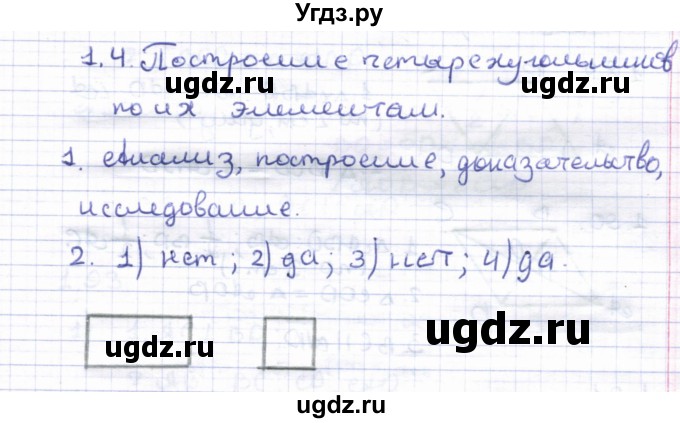 Угдз.ру
1.4. Построение четырехугольников
ugdz.ru ugdz.ru
по их элементам.
1. Анализ, построение, доказательство,
ugdz.ru
исследование.
2. 1) нет; 2) да; 3) нет; 4) да.
ugdz.ru ugdz.ru
ugdz.ru